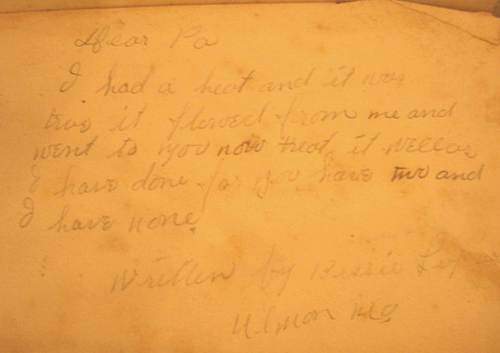 Dear Pa
I had a heat and it was
true it flowed from me and
went to you now treat it well as
I have done for you have two and
I have none.
Written by Bessie
Ulman Mo